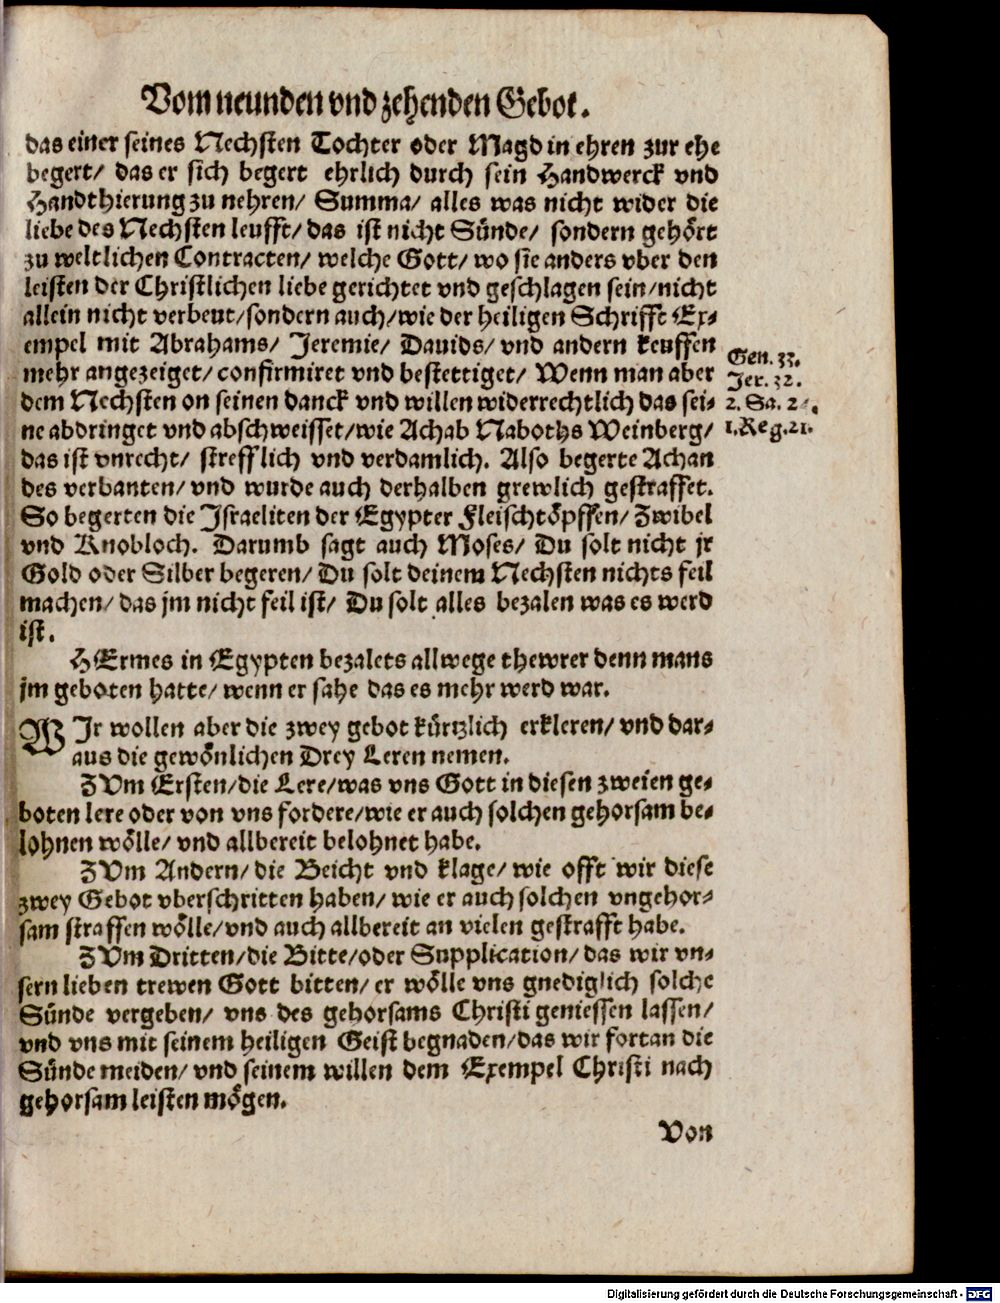 Vom neunden vnd zehenden Gebot.
das einer seines Nechsten Tochter oder Magd in ehren zur ehe
begert/ das er sich begert ehrlich durch sein Handwerck vnd
Handthierung zu nehren/ Summa/ alles was nicht wider die
liebe des Nechsten leufft/ das ist nicht Sünde/ sondern gehört
zu weltlichen Contracten/ welche Gott/ wo sie anders vber den
leisten der Christlichen liebe gerichtet vnd geschlagen sein/ nicht
allein nicht verbeut/ sondern auch/ wie der heiligen Schrifft Ex-
empel mit Abrahams/ Jeremie/ Dauids/ vnd andern keuffen
mehr angezeiget/ confirmiret vnd bestettiget/ Wenn man aber
dem Nechsten on seinen danck vnd willen widerrechtlich das sei-
ne abdringet vnd abschweisset/ wie Achab Naboths Weinberg/
das ist vnrecht/ strefflich vnd verdamlich. Also begerte Achan
des verbanten/ vnd wurde auch derhalben grewlich gestraffet.
So begerten die Israeliten der Egypter Fleischtöpffen/ Zwibel
vnd Knobloch. Darumb sagt auch Moses/ Du solt nicht jr
Gold oder Silber begeren/ Du solt deinem Nechsten nichts feil
machen/ das jm nicht feil ist/ Du solt alles bezalen was es werd
ist.
Gen. 33.
Jer. 32.
2. Sa. 24.
1. Reg. 21.
HErmes in Egypten bezalets allwege thewrer denn mans
jm geboten hatte/ wenn er sahe das es mehr werd war.
WIr wollen aber die zwey gebot kürtzlich erkleren/ vnd dar-
aus die gewönlichen Drey Leren nemen.
ZVm Ersten/ die Lere/ was vns Gott in diesen zweien ge-
boten lere oder von vns fordere/ wie er auch solchen gehorsam be-
lohnen wölle/ vnd allbereit belohnet habe.
ZVm Andern/ die Beicht vnd klage/ wie offt wir diese
zwey Gebot vberschritten haben/ wie er auch solchen vngehor-
sam straffen wölle/ vnd auch allbereit an vielen gestrafft habe.
ZVm Dritten/ die Bitte/ oder Supplication/ das wir vn-
sern lieben trewen Gott bitten/ er wölle vns gnediglich solche
Sünde vergeben/ vns des gehorsams Christi geniessen lassen/
vnd vns mit seinem heiligen Geist begnaden/ das wir fortan die
Sünde meiden/ vnd seinem willen dem Exempel Christi nach
gehorsam leisten mögen.
Von
Digitalisierung gefördert durch die Deutsche Forschungsgemeinschaft - DFG